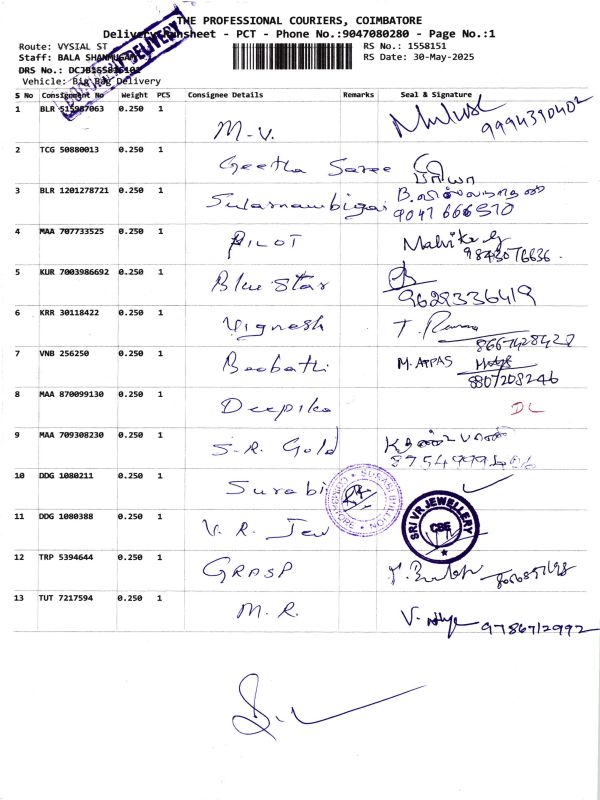 THE PROFESSIONAL COURIERS, COIMBATORE
Delivery Runsheet - PCT - Phone No.:9047080280 - Page No.:1
Route: VYSIAL ST
RS No.: 1558151
Staff: BALA SHANMUGAM
RS Date: 30-May-2025
DRS No.:
Vehicle: Big Bag Delivery
DELIVERY
S No Consignment No Weight PCS Consignee Details Remarks Seal & Signature
1 BLR 515987063 0.250 1 M-V. 9994390402
2 TCG 50880013 0.250 1 Geetha Saree பிரியா
3 BLR 1201278721 0.250 1 Sularnambigai B.
9047666570
4 MAA 707733525 0.250 1 PILOT
9843076636.
5 KUR 7003986692 0.250 1 Blue Star
9629336419
6 KRR 30118422 0.250 1 Vignesh T.
8667428427
7 VNB 256250 0.250 1 M. APPAS
8807208246
8 MAA 870099130 0.250 1 Deepika DL
9 MAA 709308230 0.250 1 S.R. Gold
10 DDG 1080211 0.250 1 Surabi
11 DDG 1080388 0.250 1 V. R. Jew
SRI VR JEWELLERY
CBE
12 TRP 5394644 0.250 1 GRASP
13 TUT 7217594 0.250 1 M.R. V.
9786712992